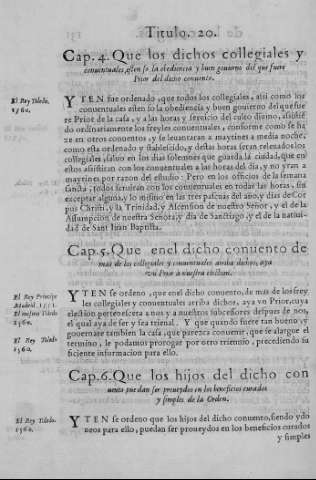 Titulo. 20.
Cap. 4. Que los dichos collegiales y
conuentuales, esten so la obediencia y buen gouierno del que fuere
Prior del dicho conuento.
El Rey Toledo.
1560.
YTEN fue ordenado, que todos los collegiales, assi como los
conuentuales esten so la obediencia y buen gouierno del que fue
re Prior de la casa, y a las horas y seruicio del culto diuino, assistié
do ordinariamente los freyles conuentuales, conforme como se ha
ze en otros conuentos, y se leuantaran a maytines a media noche,
como esta ordenado y establecido, y destas horas seran releuados los
collegiales, saluo en los dias solennes que guarda la ciudad, que en
estos assistiran con los conuentuales a las horas del dia, y no yran a
maytines por razon del estudio. Pero en los officios de la semana
sancta, todos seruiran con los conuentuales en todas las horas, sin
exceptar alguna, y lo mismo en las tres pascuas del año, y dias de Cor
pus Christi, y la Trinidad, y Ascension de nuestro Señor, y el de la
Assumpcion de nuestra Señora, y dia de Sanctiago, y el de la natiui-
dad de Sant Iuan Baptista.
Cap. 5. Que enel dicho conuento de
mas de los collegiales y conuentuales arriba dichos, aya
vn Prior a nuestra election.
El Rey Principe
Madrid. 1551.
El mesmo Toledo
1560.
El Rey Toledo
1560.
YTEN se ordeno, que enel dicho conuento, de mas de los frey
les collegiales y conuentuales arriba dichos, aya vn Prior, cuya
election pertenescera a nos y a nuestros subcessores despues de nos,
el qual aya de ser y sea trienal. Y que quando fuere tan bueno, y
gouernare tambien la casa, que parezca conuenir, que se alargue el
termino, le podamos prorogar por otro triennio, precediendo su
ficiente informacion para ello.
Cap. 6. Que los hijos del dicho con
uento puedan ser proueydos en los beneficios curados
y simples de la Orden.
El Rey Toledo
1560.
YTEN se ordeno que los hijos del dicho conuento, siendo ydo
neos para ello, puedan ser proueydos en los beneficios curados
y simples